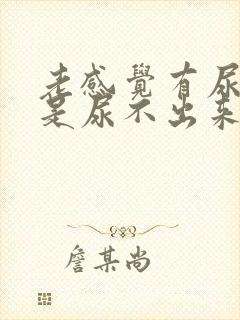 老感覺有尿
是尿不出来
詹某尚